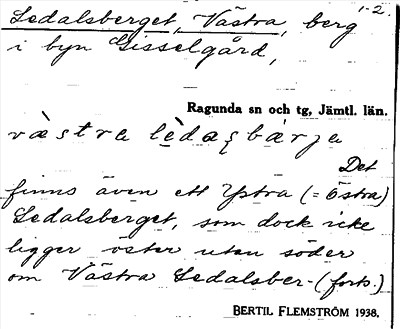 1-2.
Ledalsberget, Västra, berg
i byn Gisselgård,
Ragunda sn och tg, Jämtl. län.
västra
Det
finns även ett Ystra (= Östra)
Ledalsberget, som dock icke
ligger öster utan söder
om Västra Ledalsber- (forts.)
BERTIL FLEMSTRÖM 1938.